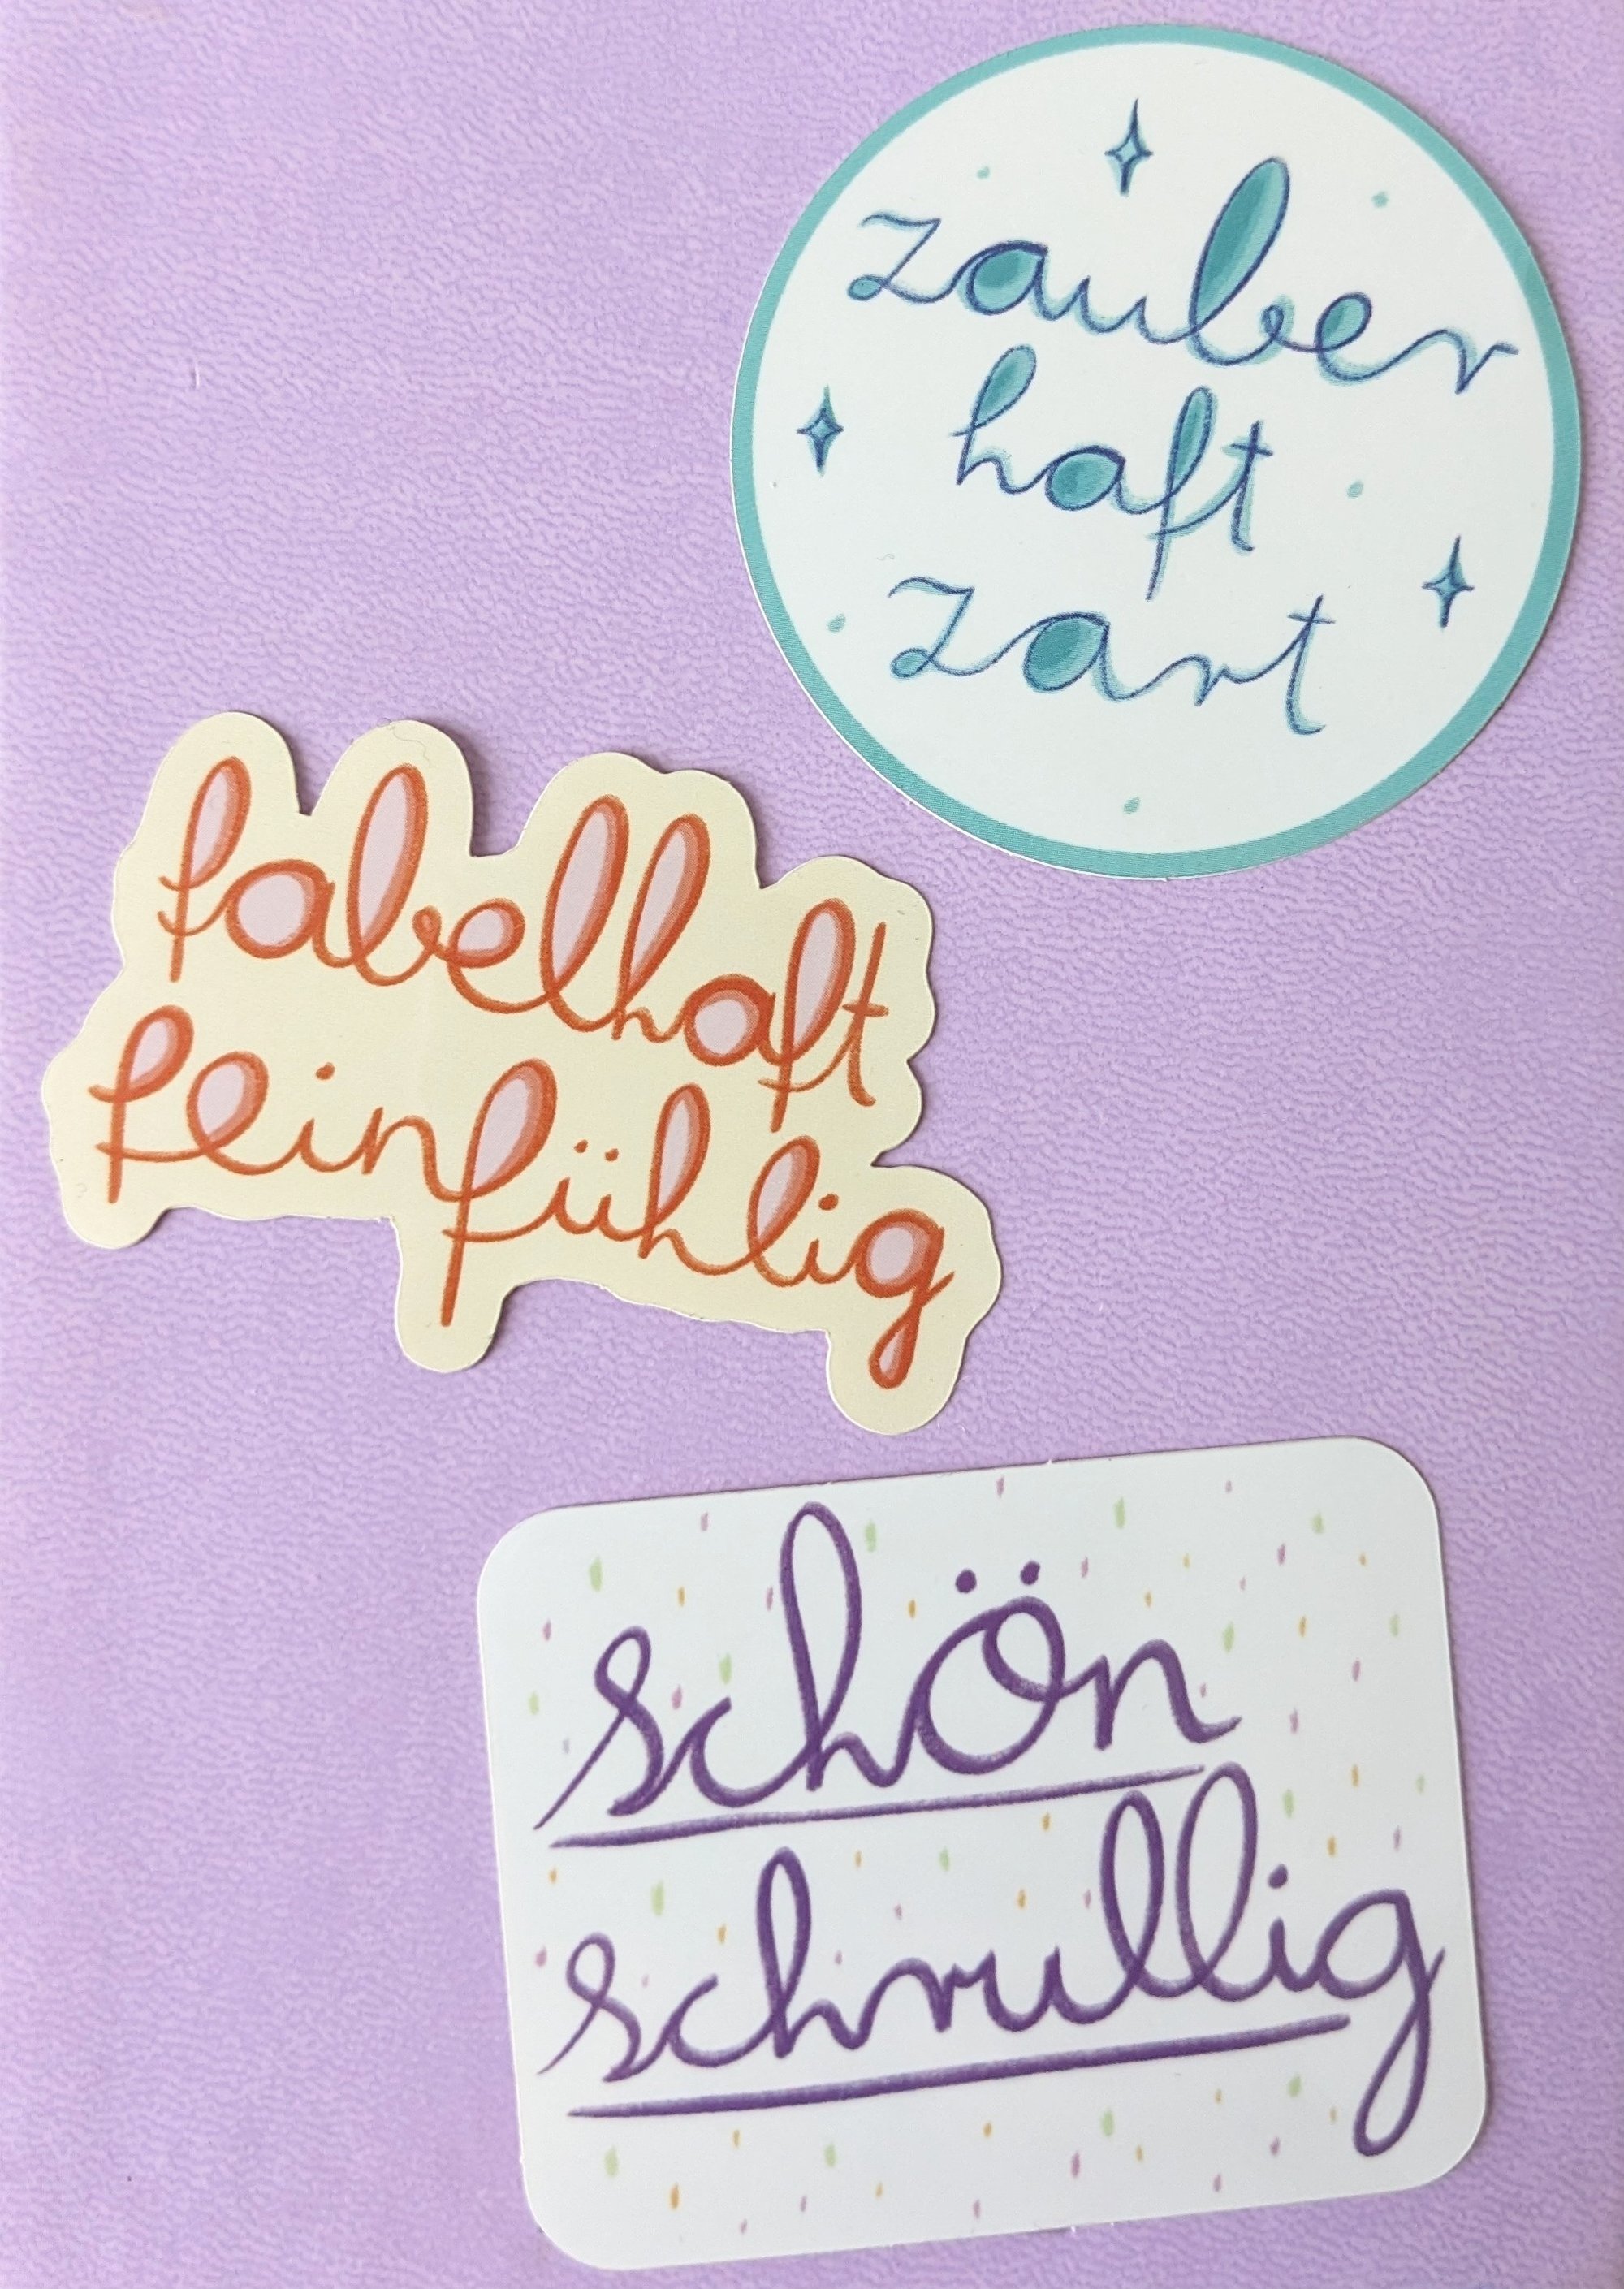 zauber
haft
zart
fabelhaft
feinfühlig
schön
schrullig